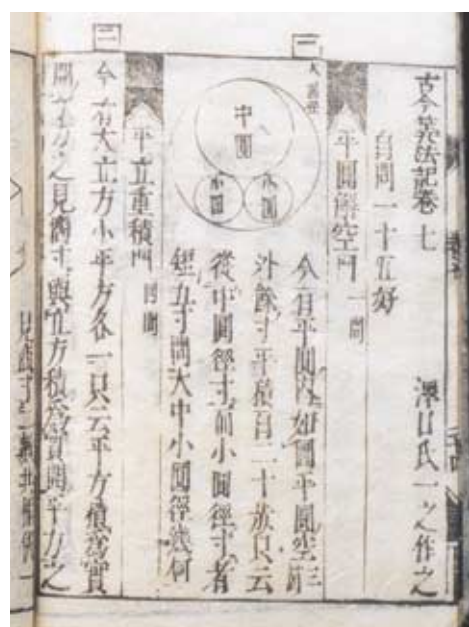 古今筭法記卷七 澤口氏一之作之
自問一十五好
平圓解空門 一問
一
大圓徑
中圓
小圓
小圓
今有平圓內如圖平圓空三箇
外餘寸平積百二十歩只云
從中圓徑寸而小圓徑寸者
短五寸問大中小圓徑幾何
平立重積門 四問
二
今有大立方小平方各一只云平方積爲實
開立方之見商寸與立方積爲實開平方之